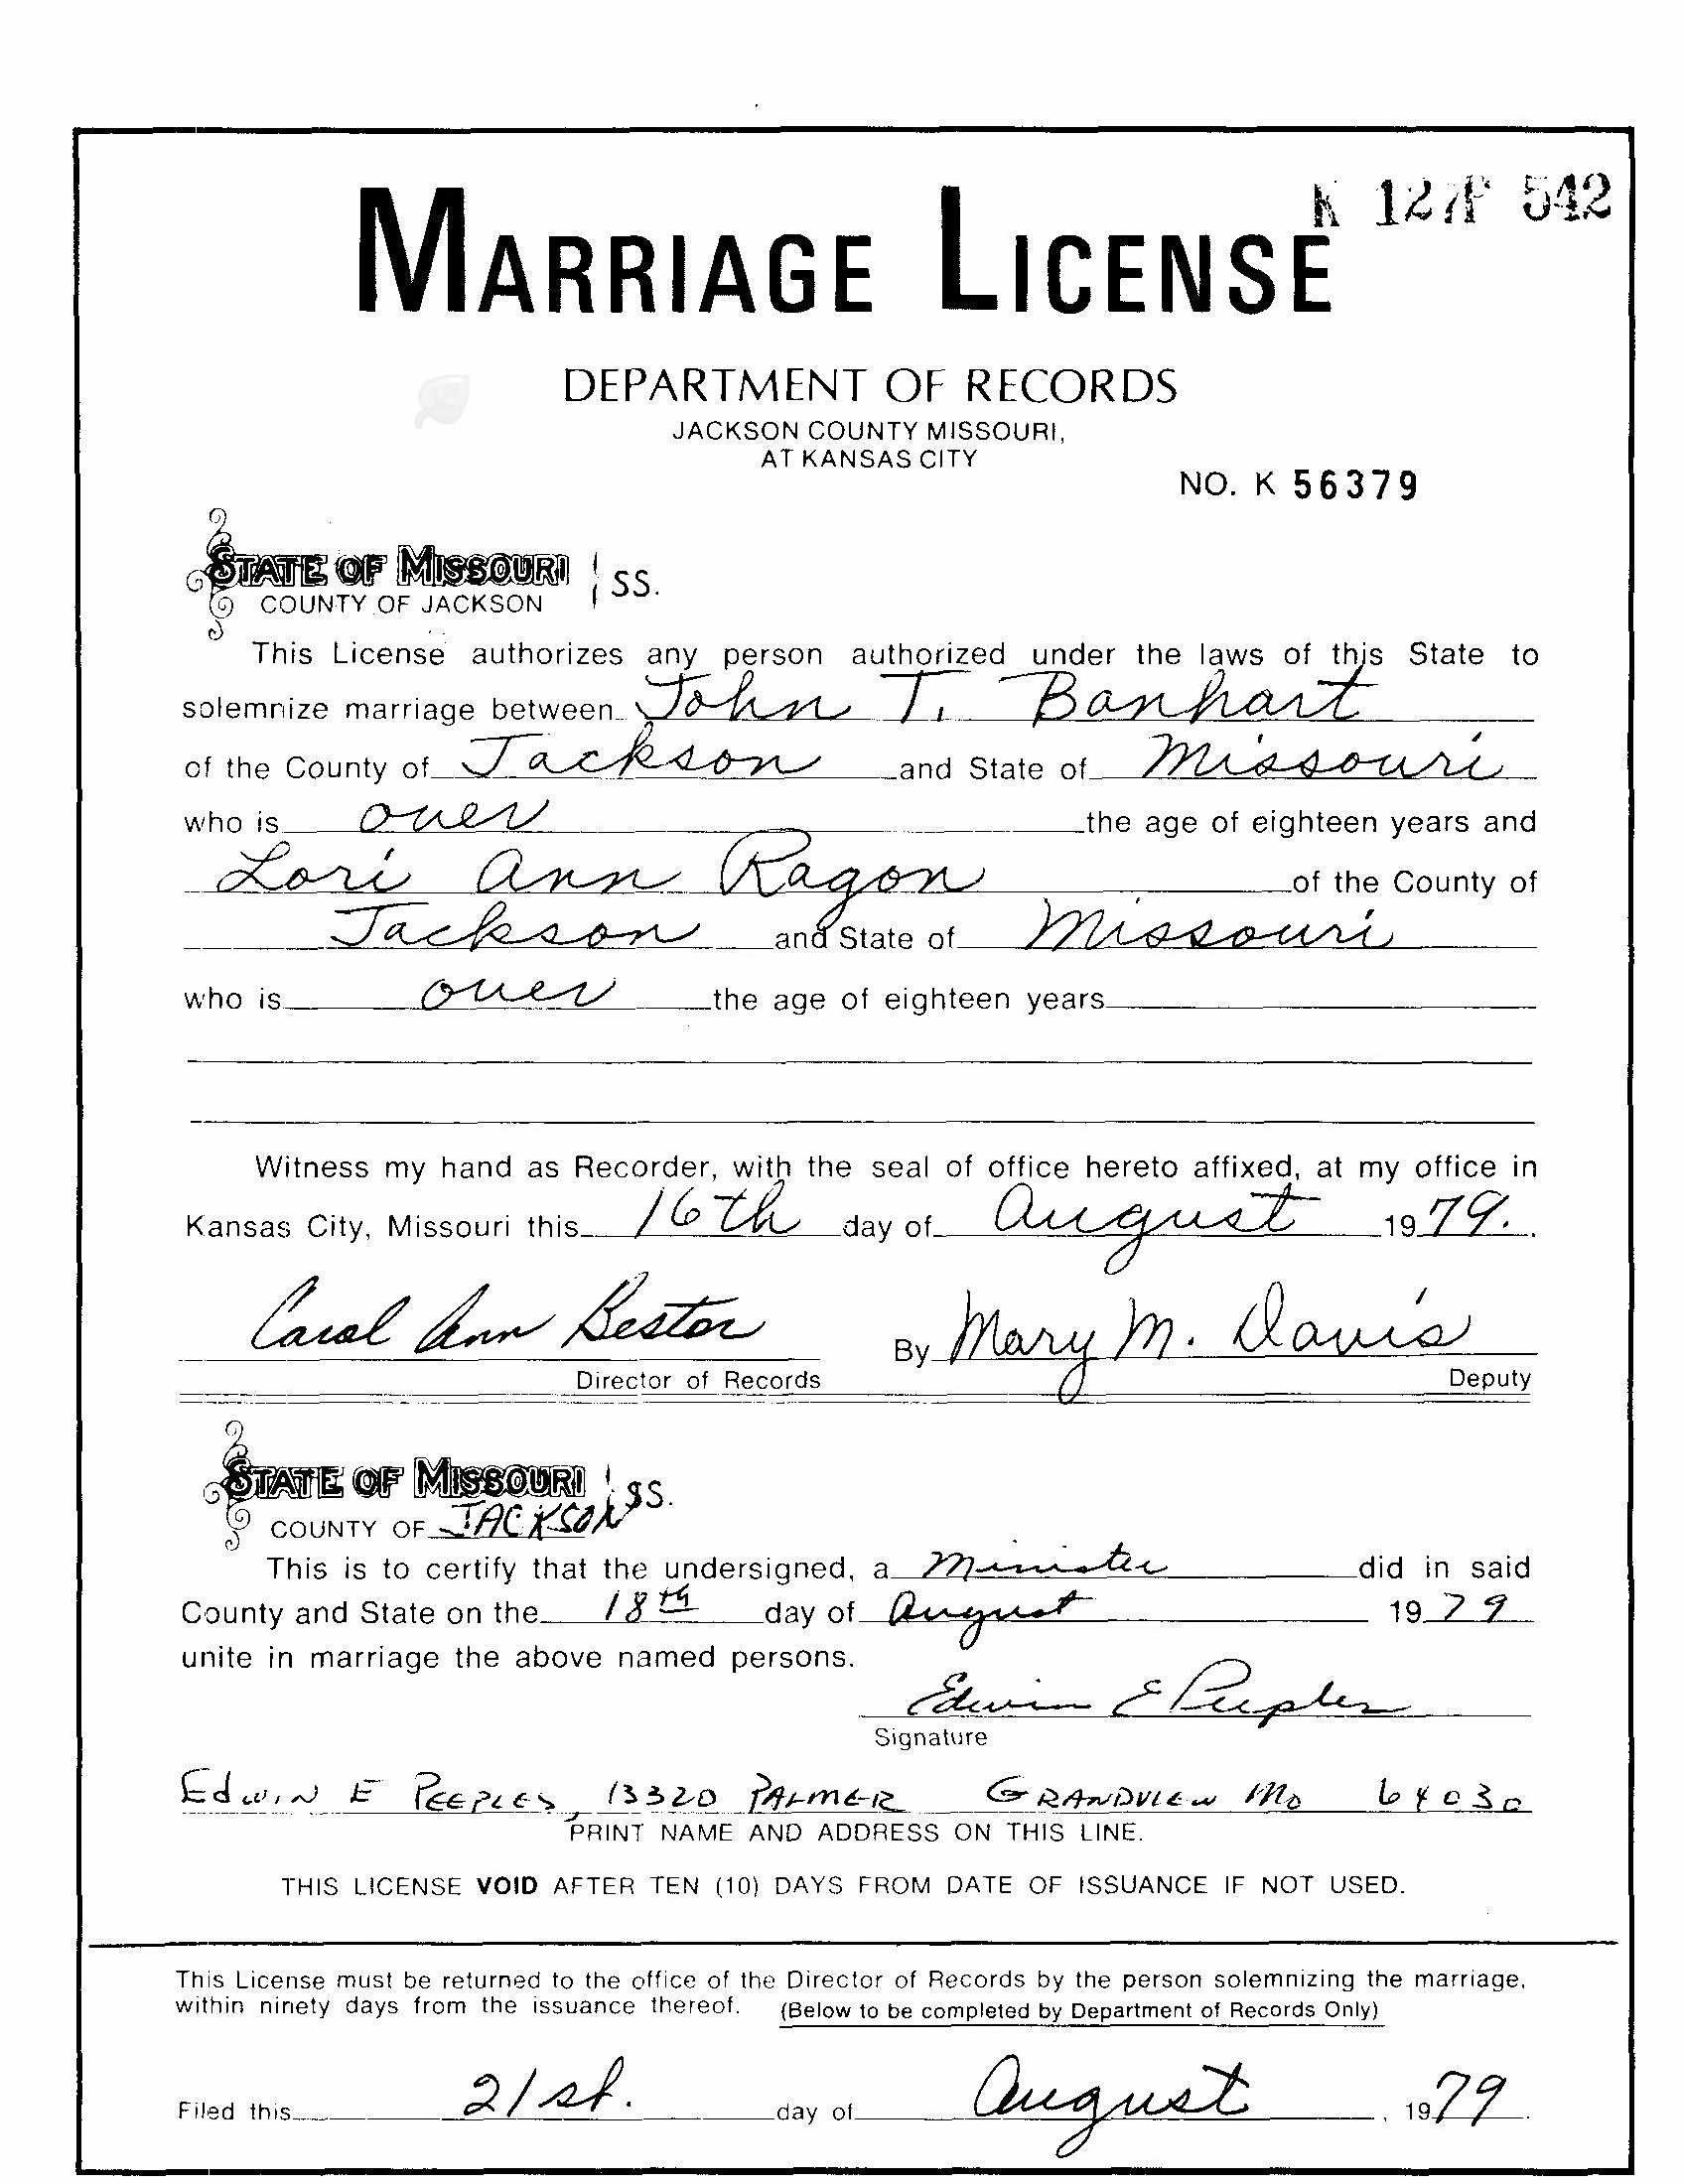 K 127P 542
MARRIAGE LICENSE
DEPARTMENT OF RECORDS
JACKSON COUNTY MISSOURI,
AT KANSAS CITY
NO. K 56379
STATE OF MISSOURI
COUNTY OF JACKSON SS.
This License authorizes any person authorized under the laws of this State to
solemnize marriage between John T. Banhart
of the County of Jackson and State of Missouri
who is over the age of eighteen years and
Lori Ann Ragon of the County of
Jackson and State of Missouri
who is over the age of eighteen years
Witness my hand as Recorder, with the seal of office hereto affixed, at my office in
Kansas City, Missouri this 16th day of August 1979.
Carol Ann Bestor By Mary M. Davis
Director of Records Deputy
STATE OF MISSOURI SS.
COUNTY OF JACKSON
This is to certify that the undersigned, a Minister did in said
County and State on the 18th day of August 1979
unite in marriage the above named persons.
Edwin E Peeples
Signature
Edwin E PEEPLES, 13320 PALMER GRANDVIEW MO 64030
PRINT NAME AND ADDRESS ON THIS LINE.
THIS LICENSE VOID AFTER TEN (10) DAYS FROM DATE OF ISSUANCE IF NOT USED.
This License must be returned to the office of the Director of Records by the person solemnizing the marriage,
within ninety days from the issuance thereof. (Below to be completed by Department of Records Only)
Filed this 21st. day of August, 1979.